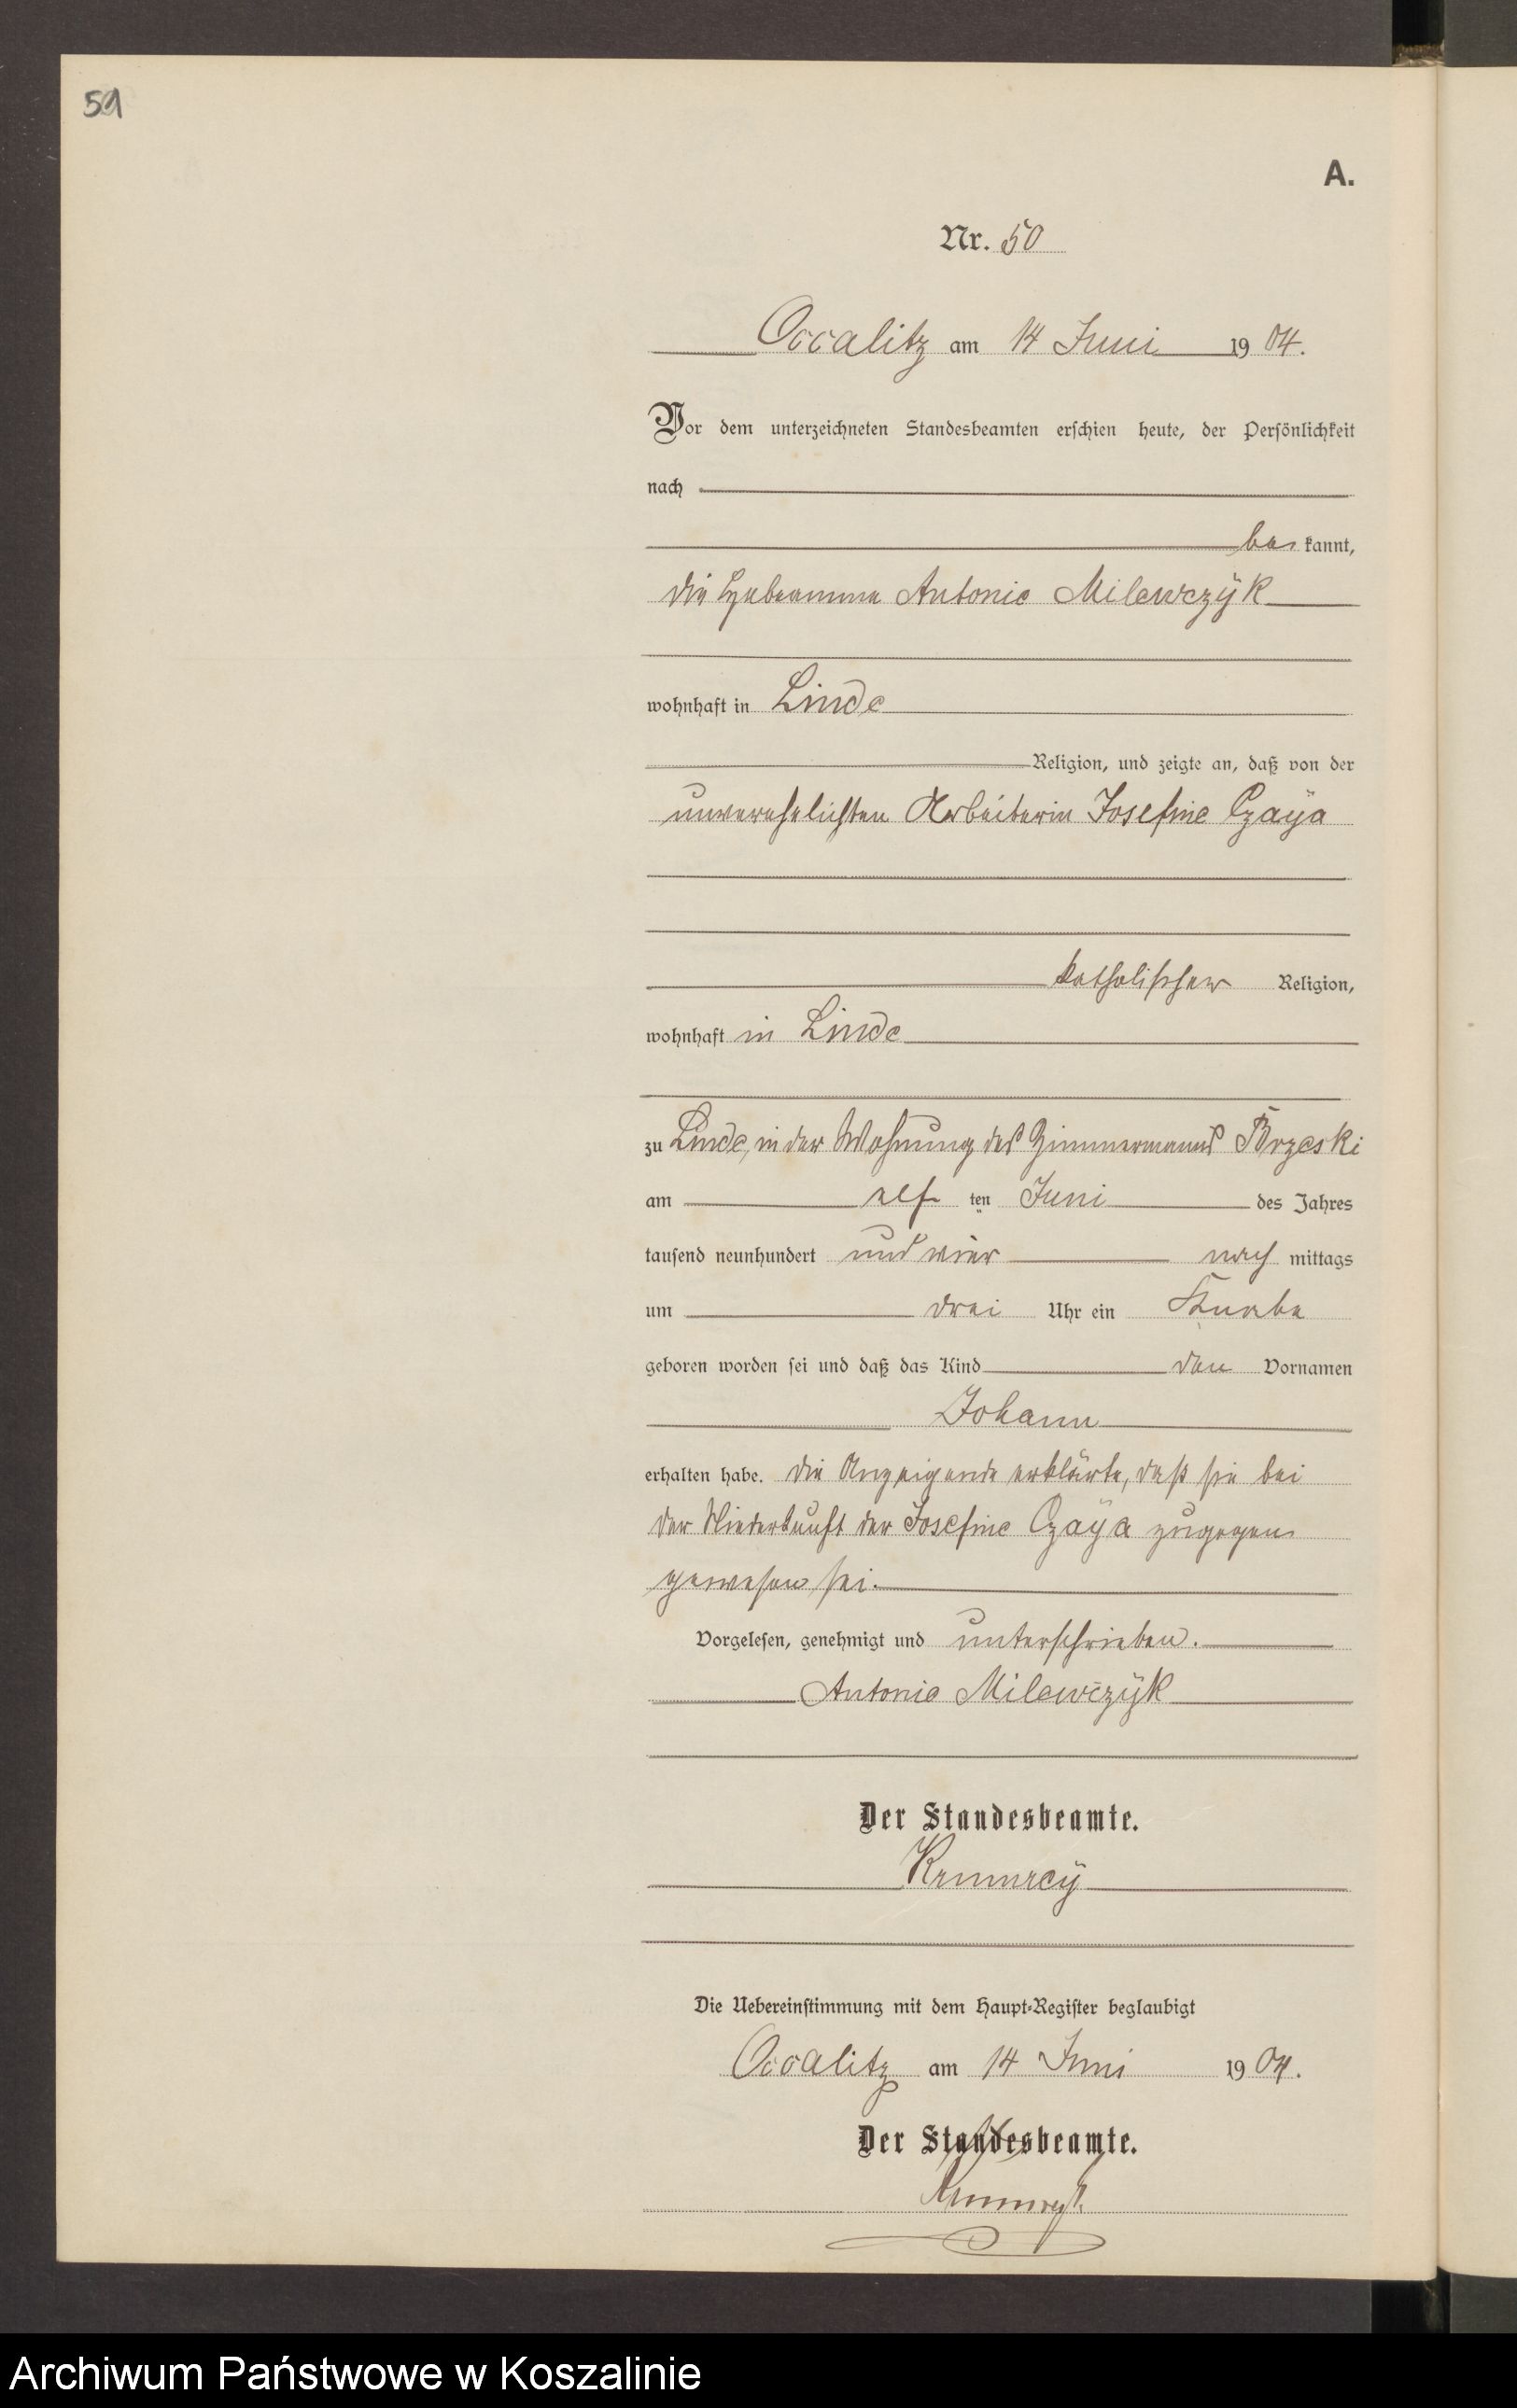 59
A.
Nr. 50
Occalitz am 14 Juni 1904.
Vor dem unterzeichneten Standesbeamten erschien heute, der Persönlichkeit
nach
be kannt,
die Hebeamme Antonie Milewczÿk
wohnhaft in Linde
Religion, und zeigte an, daß von der
unverehelichten Arbeiterin Josefine Czaÿa
katholischer Religion,
wohnhaft in Linde
zu Linde, in der Wohnung des Zimmermanns Brzeski
am elf ten Juni des Jahres
tausend neunhundert und vier nach mittags
um drei Uhr ein Knabe
geboren worden sei und daß das Kind den Vornamen
Johann
erhalten habe. Die Anzeigende erklärte, daß sie bei
der Niederkunft der Josefine Czaÿa zugegen
gewesen sei.
Vorgelesen, genehmigt und unterschrieben.
Antonie Milewczÿk
Der Standesbeamte.
Die Uebereinstimmung mit dem Haupt-Register beglaubigt
Occalitz am 14 Juni 1904.
Der Standesbeamte.
Archiwum Państwowe w Koszalinie